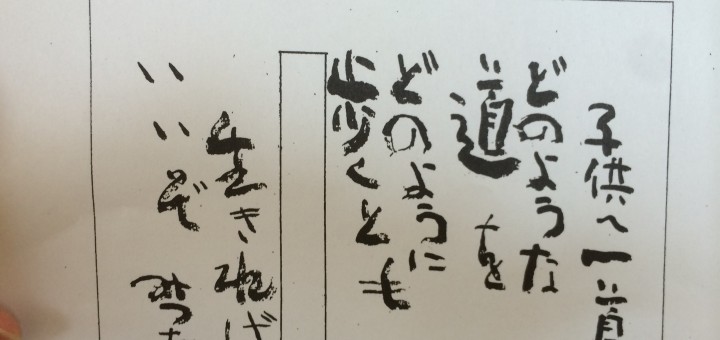 子供へ一首
どのような
道を
どのように
歩くとも
生きれば
いいぞ みつを